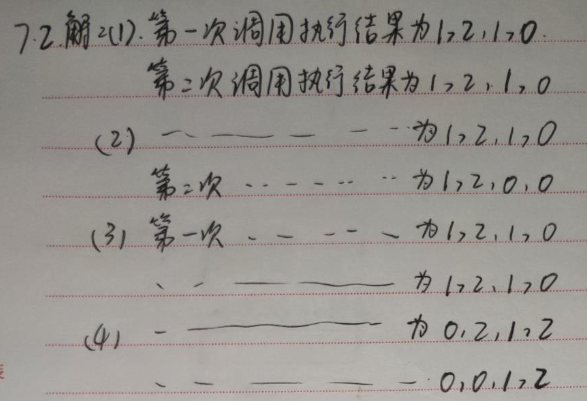 7.2.解:(1).第一次调用执行结果为1,2,1,0.
第二次调用执行结果为1,2,1,0
(2) 一 - —— — — - -为1,2,1,0
第二次 -- - - -- --为1,2,0,0
(3) 第一次 - - -- -为1,2,1,0
- - — —— 为1,2,1,0
(4) - ———— 为0,2,1,2
- - — — -0,0,1,2